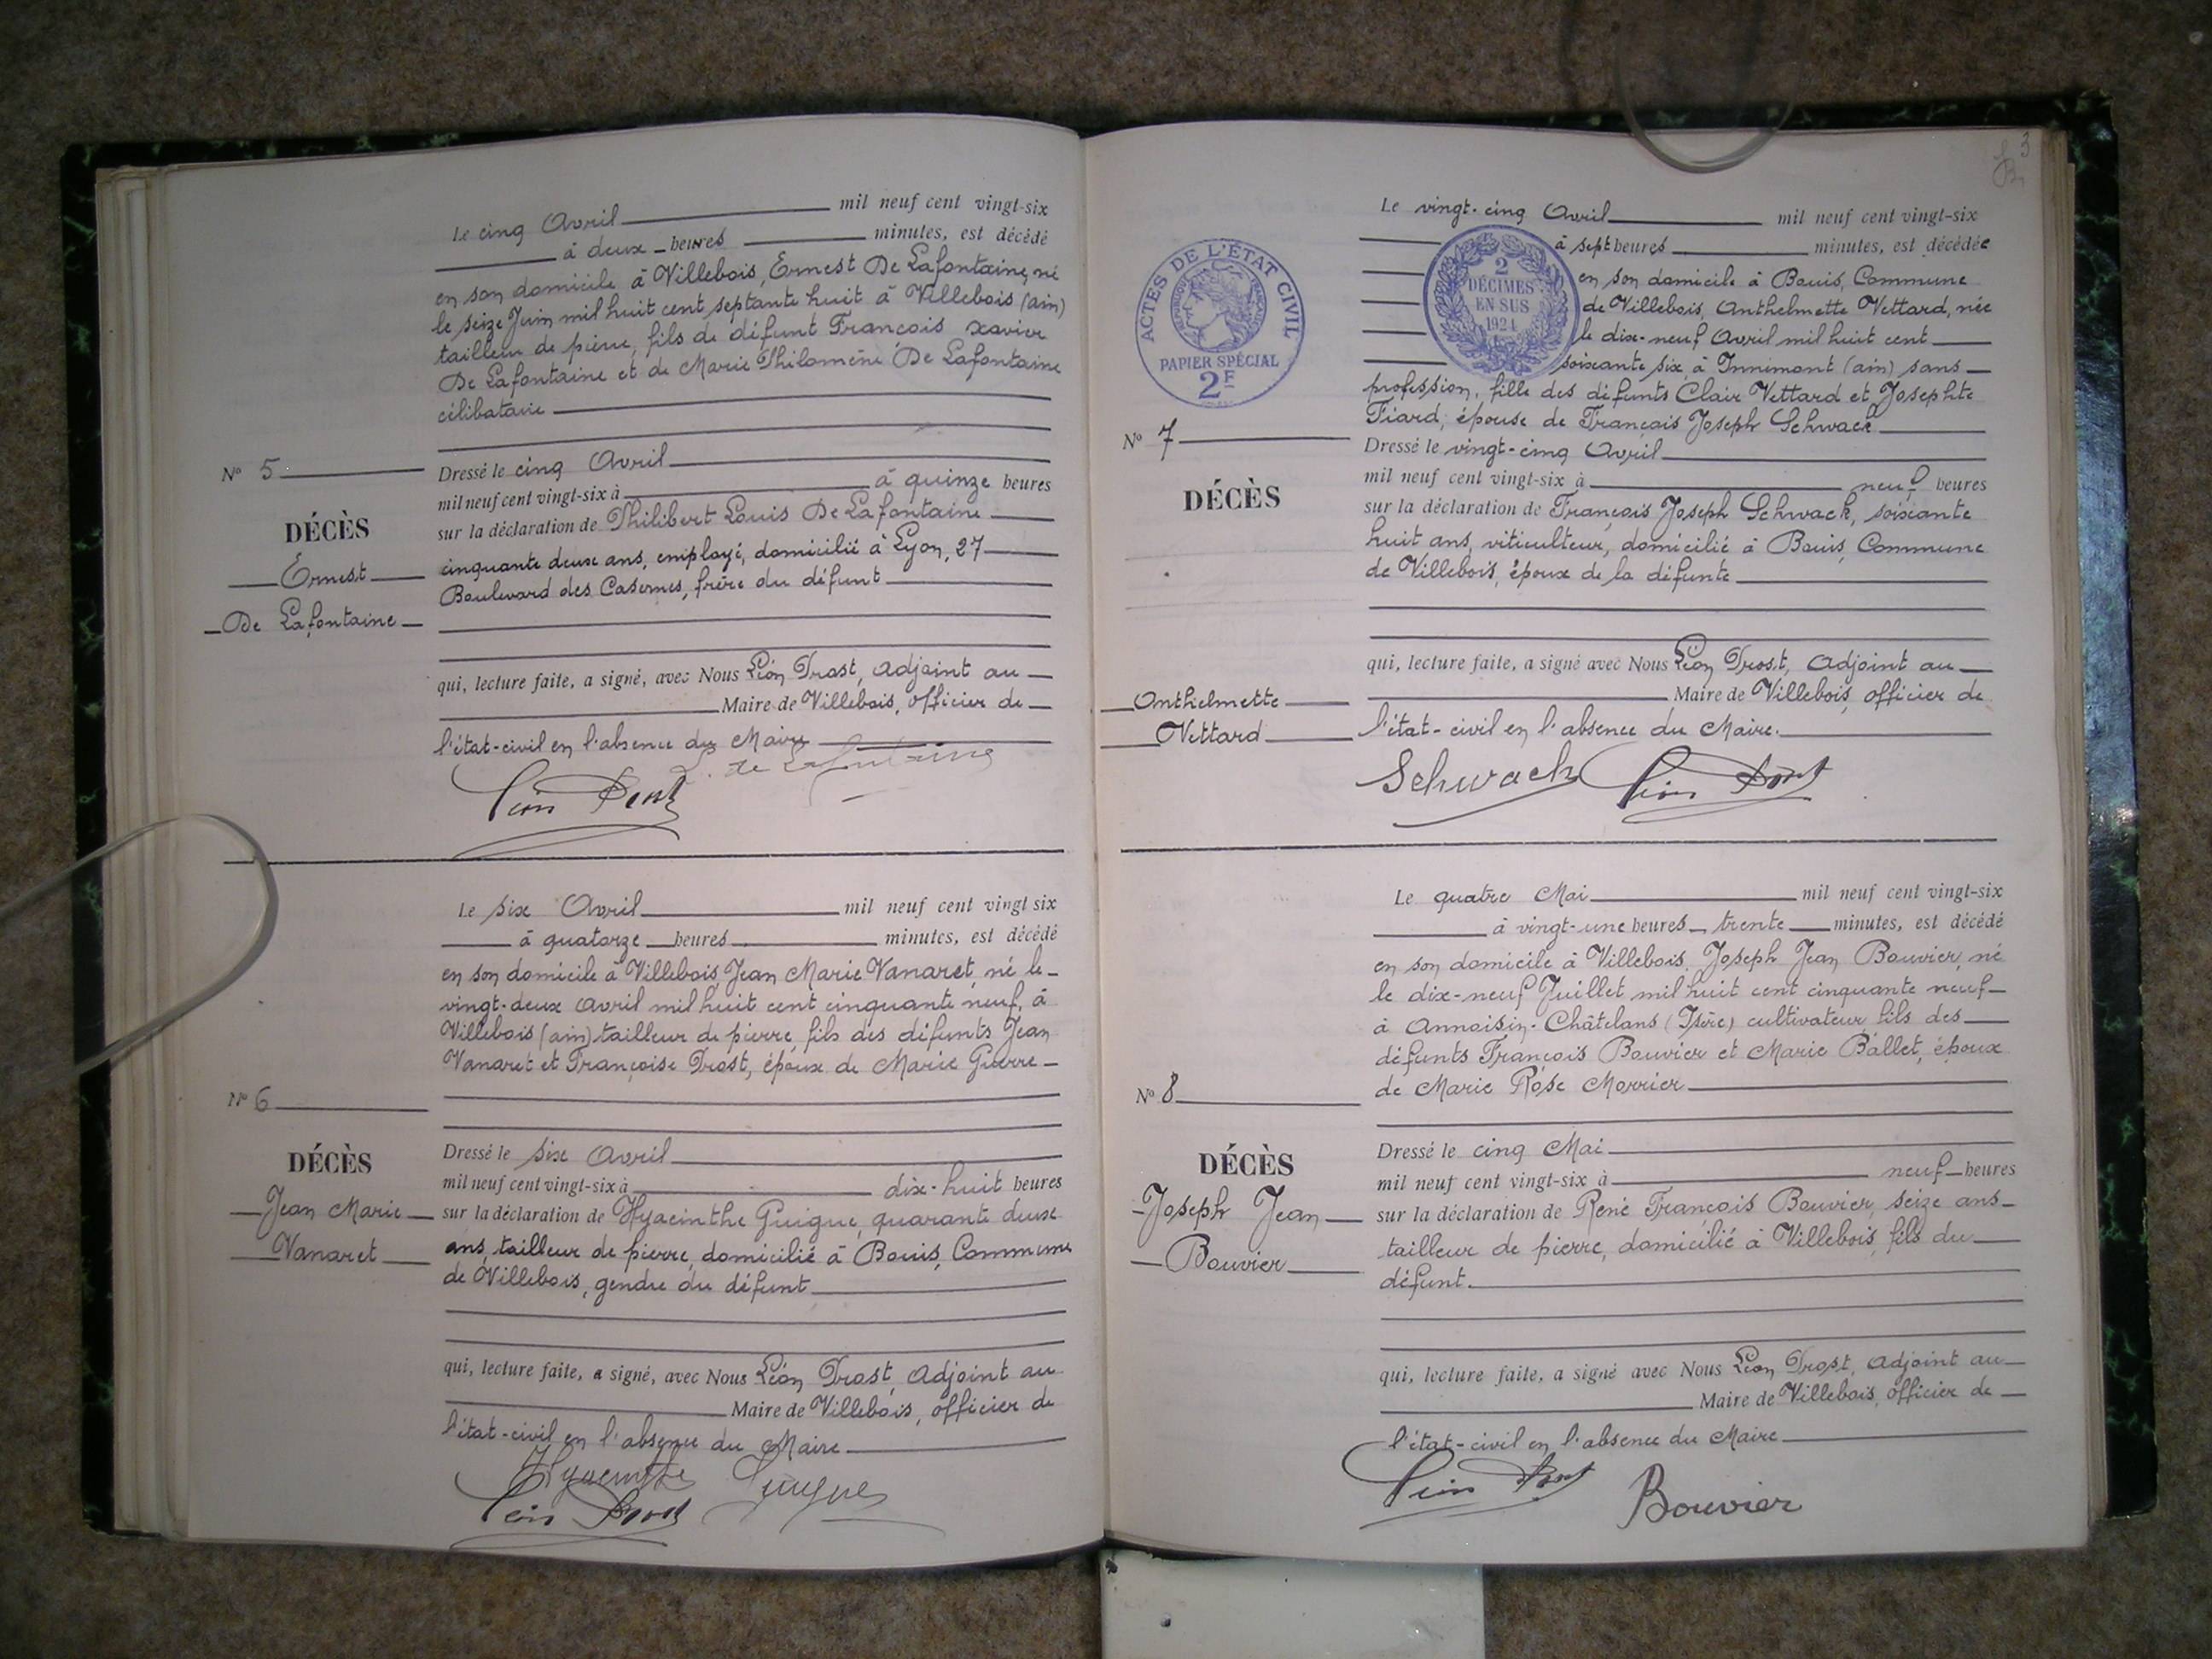 Le cinq Avril mil neuf cent vingt-six
à deux heures minutes, est décédé
en son domicile à Villebois, Ernest De Lafontaine, né
le seize Juin mil huit cent septante huit à Villebois (ain)
tailleur de pierre, fils de défunt François xavier
De Lafontaine et de Marie Philomène De Lafontaine
célibataire
N° 5
Dressé le cinq Avril
mil neuf cent vingt-six à à quinze heures
DÉCÈS
sur la déclaration de Philibert Louis De Lafontaine
Ernest
cinquante deux ans, employé, domicilié à Lyon, 27
De Lafontaine
Boulevard des Casernes, frère du défunt
qui, lecture faite, a signé, avec Nous Léon Trost, adjoint au
Maire de Villebois, officier de
l'état-civil en l'absence du Maire
L. de Lafontaine
Léon Trost
Le six Avril mil neuf cent vingt six
à quatorze heures minutes, est décédé
en son domicile à Villebois, Jean Marie Vanaret, né le
vingt-deux avril mil huit cent cinquante neuf, à
Villebois (ain) tailleur de pierre, fils des défunts Jean
Vanaret et Françoise Trost, époux de Marie Guerre
N° 6
Dressé le six Avril
DÉCÈS
mil neuf cent vingt-six à dix-huit heures
Jean Marie
sur la déclaration de Hyacinthe Guigue, quarante deux
Vanaret
ans, tailleur de pierre, domicilié à Bouis, Commune
de Villebois, gendre du défunt
qui, lecture faite, a signé, avec Nous Léon Trost, adjoint au
Maire de Villebois, officier de
l'état-civil en l'absence du Maire
Hyacinthe Guigue
Léon Trost
3
ACTES DE L'ÉTAT CIVIL
RÉPUBLIQUE FRANÇAISE
PAPIER SPÉCIAL
2F
2
DÉCIMES
EN SUS
1924
Le vingt-cinq Avril mil neuf cent vingt-six
à sept heures minutes, est décédée
en son domicile à Bouis, Commune
de Villebois, Anthelmette Vettard, née
le dix-neuf Avril mil huit cent
soixante six à Innimont (ain) sans
profession, fille des défunts Clair Vettard et Josephte
Tiard, épouse de François Joseph Schwack
N° 7
Dressé le vingt-cinq Avril
mil neuf cent vingt-six à neuf heures
DÉCÈS
sur la déclaration de François Joseph Schwack, soixante
huit ans, viticulteur, domicilié à Bouis, Commune
de Villebois, époux de la défunte
qui, lecture faite, a signé avec Nous Léon Trost, Adjoint au
Anthelmette
Maire de Villebois, officier de
Vettard
l'état-civil en l'absence du Maire.
Schwack Léon Trost
Le quatre Mai mil neuf cent vingt-six
à vingt-une heures trente minutes, est décédé
en son domicile à Villebois, Joseph Jean Bouvier, né
le dix-neuf Juillet mil huit cent cinquante neuf
à Annoisin-Châtelans (Isère) cultivateur, fils des
défunts François Bouvier et Marie Ballet, époux
de Marie Rose Morrier
N° 8
Dressé le cinq Mai
DÉCÈS
mil neuf cent vingt-six à neuf heures
Joseph Jean
sur la déclaration de René François Bouvier, seize ans
Bouvier
tailleur de pierre, domicilié à Villebois, fils du
défunt.
qui, lecture faite, a signé avec Nous Léon Trost, adjoint au
Maire de Villebois, officier de
l'état-civil en l'absence du Maire
Léon Trost Bouvier